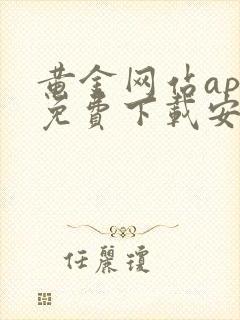 黄金网站ap
免費下載安
任麗瓊